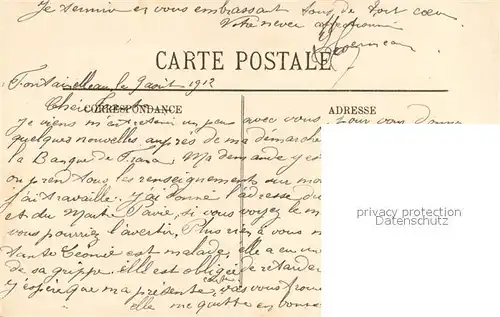 Je termine en vous embrassant tous de tout cœur
Votre neveu affectionné
CARTE POSTALE
Fontainebleau le 9 août 1912
CORRESPONDANCE
ADRESSE
Je viens m'entretenir un peu avec vous pour vous donner
quelques nouvelles auprès de ma démarche
la Banque de France Ma demande y est
on prend tous les renseignements sur mo
j'ai travaillé. j'ai donné l'adresse du
et du Mont Pavie, si vous voyez le m
vous pourriez l'avertir, Plus rien à vous
Tante Léonie est malade, elle a eu un
de sa grippe elle est obligée de retarder
j'espère que ma présente vous
elle me quitte en bonne
privacy protection
Datenschutz